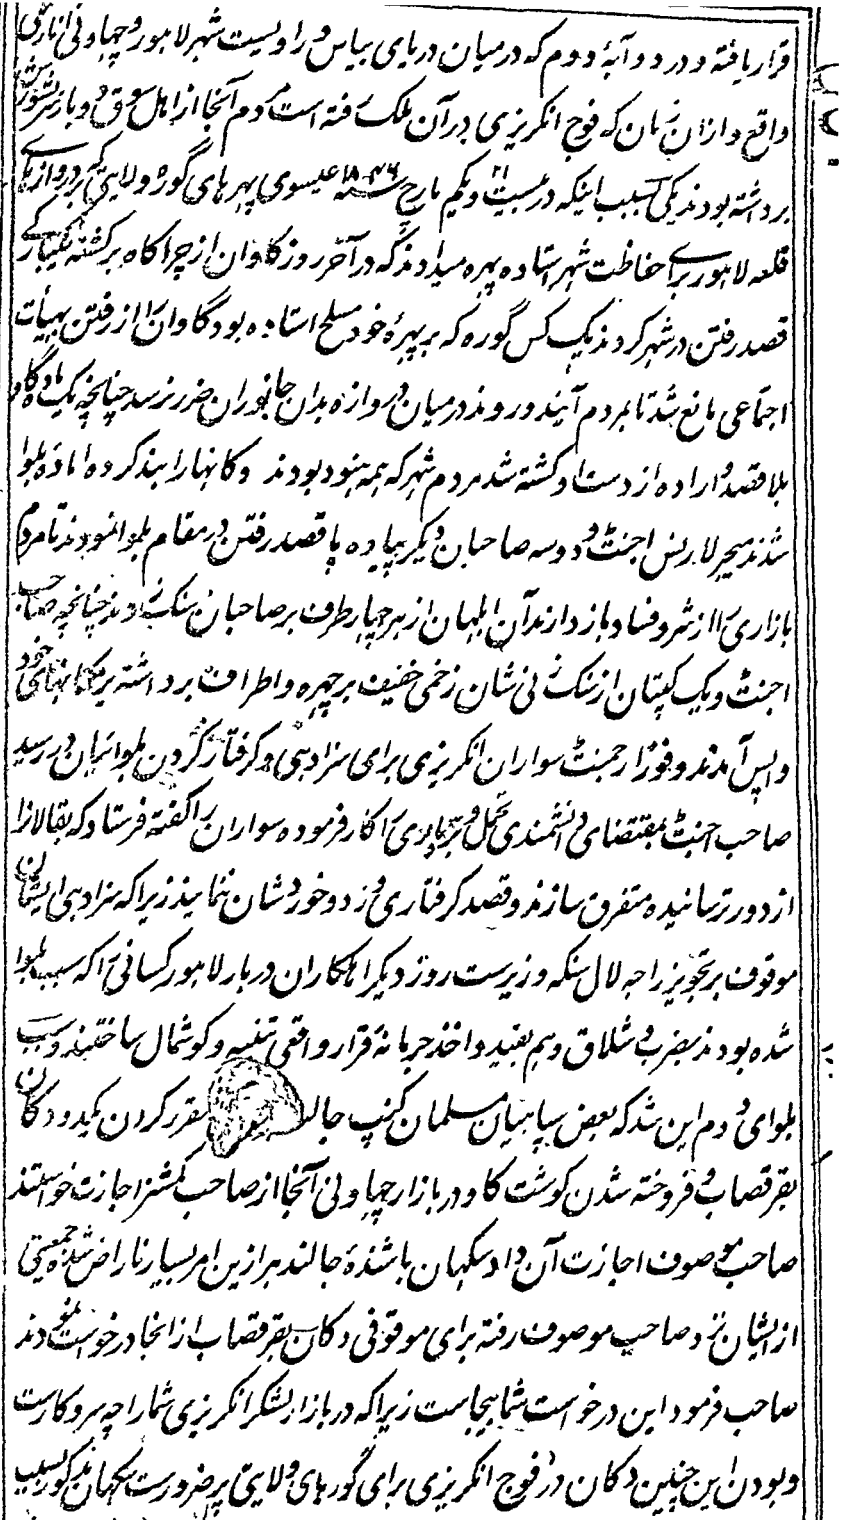 قرار یافته و در دوآبهٔ دوم که درمیان دریای بیاس و راویست شهر لاهور و چهاونی انارکلی
واقع و ازان زمان که فوج انگریزی در آن ملک رفته است مردم آنجا از اهل سوق دو بار شورش
برداشته بودند یکی بسبب اینکه در بیست و یکم مارچ سنه ۱۸۴۶ عیسوی پهرهای گوره ولایتی که بر دروازهای
قلعه لاهور برای حفاظت شهر استاده پهره میدادند که در آخر روز گاوان از چراگاه برگشته یکبارگی
قصد رفتن در شهر کردند یک کس گوره که بر پهرهٔ خود مسلح استاده بود گاوان را از رفتن بهیأت
اجتماعی مانع شد تا بمردم آیند و روند درمیان دروازه بدان جانوران ضرر نرسد چنانچه یک ماده گاو
بلا قصد و اراده از دست او کشته شد مردم شهر که همه هنود بودند دکانها را بند کرده آماده بلوا
شدند میجر لارنس اجنٹ و دو سه صاحبان دیگر پیاده پا قصد رفتن در مقام بلوا نمودند تا مردم
بازاری را از شر و فساد باز دارند آن ابلهان از هر چهار طرف بر صاحبان سنگ زدند چنانچه صاحب
اجنٹ و یک کپتان از سنگ زنی نشان زخمی خفیف بر چهره و اطراف برداشته بر مکانهای خود
واپس آمدند و فوراً رجمنٹ سواران انگریزی برای سزادهی و گرفتار کردن بلوائیان در رسید
صاحب اجنٹ بمقتضای دانشمندی تحمل و بردباری را کار فرموده سواران را گفته فرستاد که بقالان را
از دور ترسانیده متفرق سازند و قصد گرفتاری و زد و خورد شان ننمایند زیرا که سزادهی ایشان
موقوف بر تجویز راجه لال سنگه وزیرست روز دیگر اهلکاران دربار لاهور کسانی را که سبب بلوا
شده بودند بضرب و شلاق و هم بقید و اخذ جرمانه قرار واقعی تنبیه و گوشمال ساختند و سبب
بلوای دوم این شد که بعض سپاهیان مسلمان کنپ جال مقرر کردن یکدو دکان
بقر قصاب و فروخته شدن گوشت گاو در بازار چهاونی آنجا از صاحب کمشنر اجازت خواستند
صاحب موصوف اجازت آن داد سکهان باشندهٔ جالندهر ازین امر بسیار ناراض شده جمعیتی
از ایشان نزد صاحب موصوف رفته برای موقوفی دکان بقر قصاب از انجا درخواست نمودند
صاحب فرمود این درخواست شما بیجاست زیرا که در بازار لشکر انگریزی شما را چه سروکارست
و بودن این چنین دکان در فوج انگریزی برای گورهای ولایتی پر ضرورت سکهان مذکور بسبب